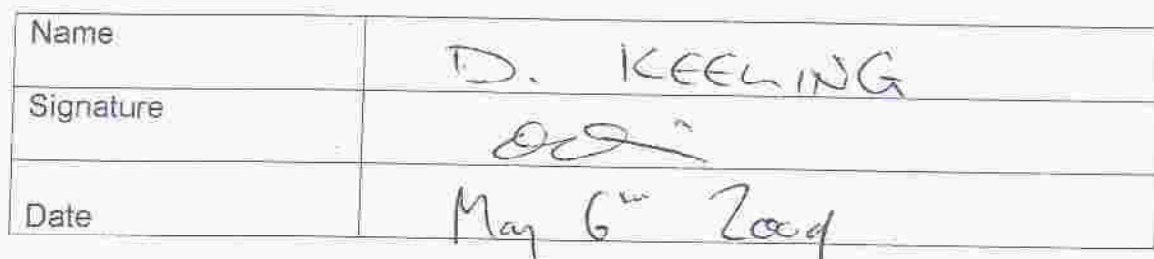 Name D. KEELING
Signature
Date May 6th 2009